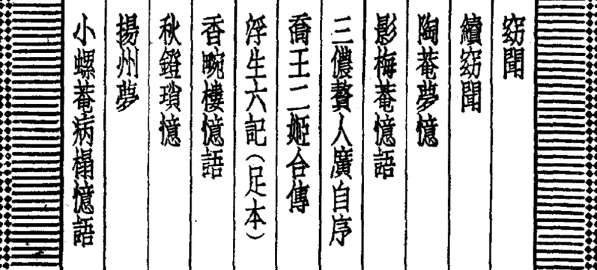 窈聞
續窈聞
陶菴夢憶
影梅菴憶語
三儂贅人廣自序
喬王二姬合傳
浮生六記(足本)
香畹樓憶語
秋鐙瑣憶
揚州夢
小螺菴病榻憶語